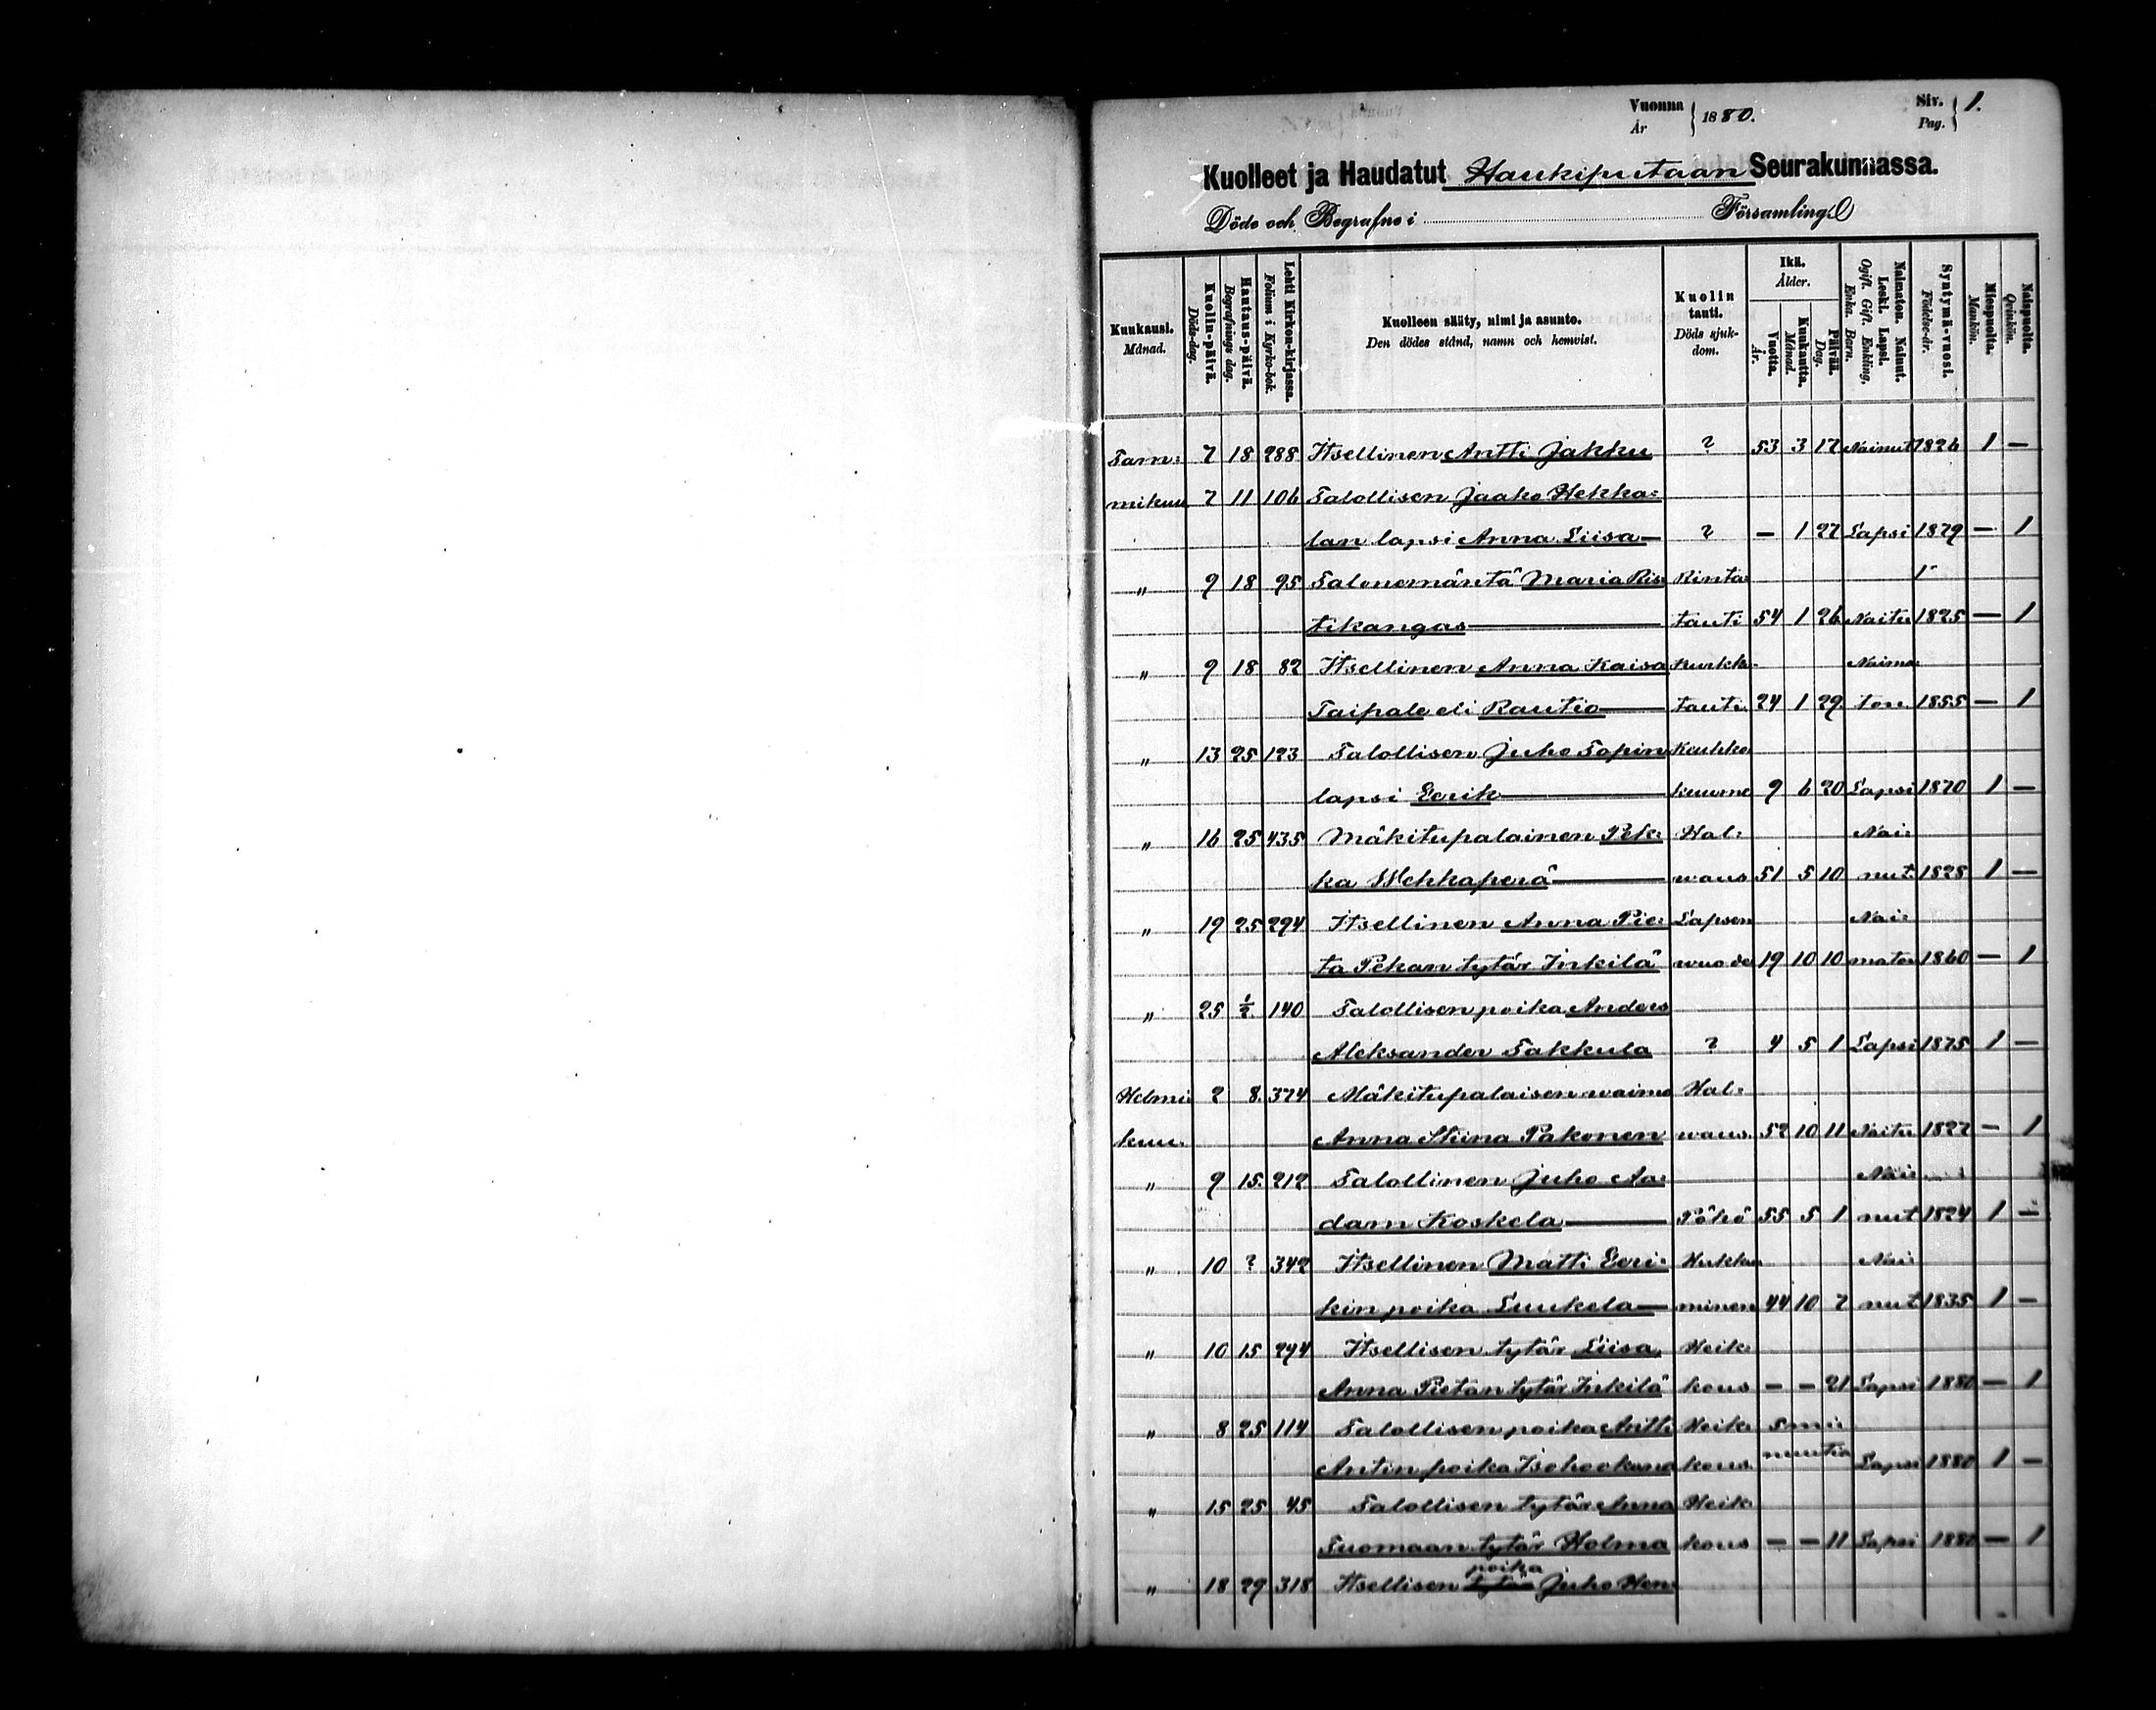 Vuonna År 1880.
Siv. Pag. 1.
Kuolleet ja Haudatut Haukiputaan Seurakunnassa.
Döde och Begrafne i Församling.
Kuukausi. Månad.
Kuolin-päivä. Döds-dag.
Hautaus-päivä. Begrafnings dag.
Lehti Kirkon-kirjassa. Folium i Kyrko-bok.
Kuolleen sääty, nimi ja asunto. Den dödes stånd, namn och hemvist.
Kuolin tauti. Döds sjuk-dom.
Ikä. Ålder.
Vuotta. År.
Kuukautta. Månad.
Päivää. Dag.
Naimaton. Nainut. Leski. Lapsi. Ogift. Gift. Enkling. Enka. Barn.
Syntymä-vuosi. Födelse-år.
Miespuolta. Mankön.
Naispuolta. Qvinkön.
Tam: 7 18 288 Itsellinen Antti Jakku ? 53 3 17 Nainut 1826 1 —
mikuu 7 11 106 Talollisen Jaako Hekka:
lan lapsi Anna Liisa — ? — 1 27 Lapsi 1879 — 1
" 9 18 95 Talonemäntä Maria Ris Rinta
tikangas tauti 54 1 26 Naitu 1825 — 1
" 9 18 82 Itsellinen Anna Kaisa Kurkku Naima
Taipale eli Rautio tauti 24 1 29 ton 1855 — 1
" 13 25 123 Talollisen Juho Topin Keuhko
lapsi Eerik kuume 9 6 20 Lapsi 1870 1 —
" 16 25 435 Mäkitupalainen Pek: Hal: Nai:
ka Wehkaperä waus 51 5 10 nut 1828 1 —
" 19 25 294 Itsellinen Anna Pie: Lapsen Nai:
ta Pekan tytär Inkilä wuode 19 10 10 maton 1860 — 1
" 25 1/2 140 Talollisen poika Anders
Aleksander Takkula ? 4 5 1 Lapsi 1875 1 —
Helmi 2 8. 374 Mäkitupalaisen waimo Hal:
kuu. Anna Stiina Pakonen waus. 52 10 11 Naitu 1827 — 1
" 9 15. 212 Talollinen Juho Aa: Nai:
dam Koskela Pöhö 55 5 1 nut 1824 1 —
" 10 ? 342 Itsellinen Matti Eeri: Hukku Nai
kin poika Luukela minen 44 10 7 nut 1835 1 —
" 10 15 294 Itsellisen tytär Liisa Heik
Anna Pietan tytär Inkilä kous — — 21 Lapsi 1880 — 1
" 8 25 114 Talollisen poika Antti Heik 5 mi:
Antin poika kous nuutia Lapsi 1880 1 —
" 15 25 45 Talollisen tytär Anna Heik
Tuomaan tytär Holma kous — — 11 Lapsi 1880 — 1
poika
" 18 29 318 Itsellisen tytär Juho Hen